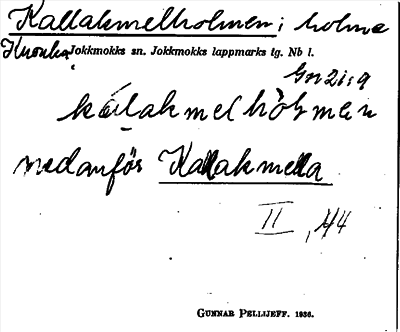 Kallakmelholmen; holme
Jokkmokks sn. Jokkmokks lappmarks tg. Nb l.
Gn 21:9
kálakmelhòlmen
nedanför Kallakmella
II, 44
GUNNAR PELLIJEFF. 1936.